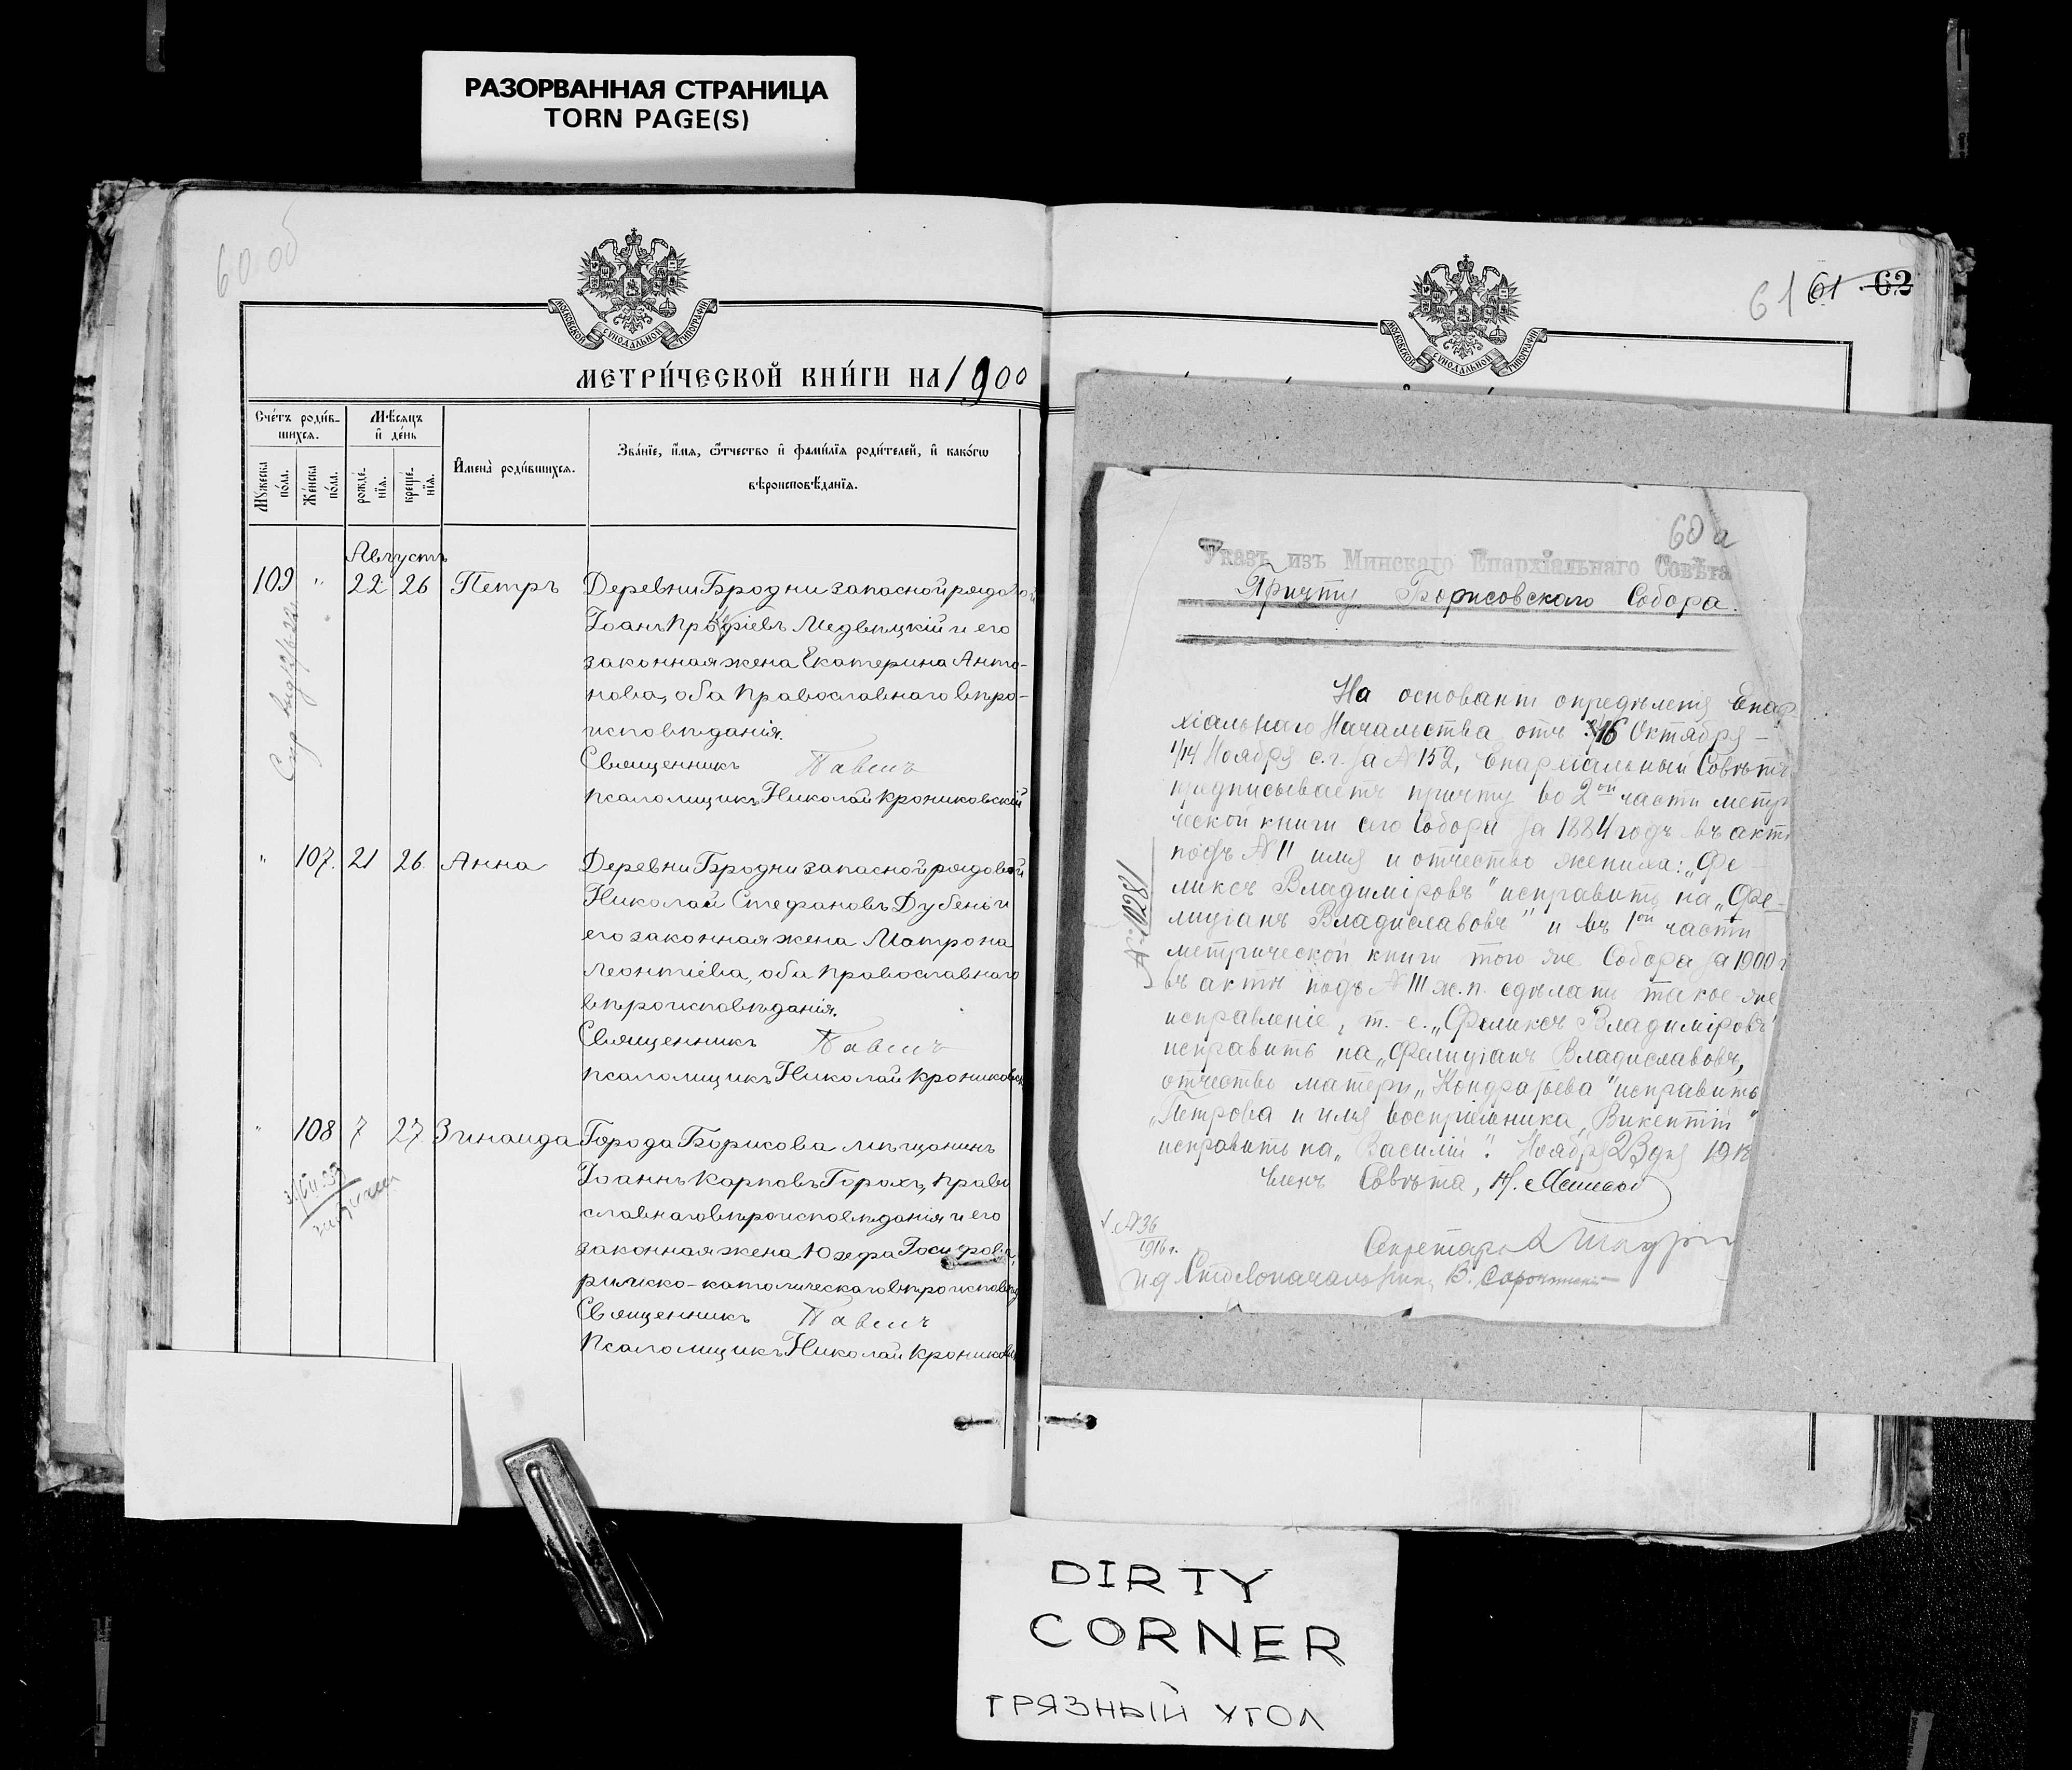 РАЗОРВАННАЯ СТРАНИЦА
TORN PAGE(S)
60 об
МОСКОВСКОЙ СУНОДАЛЬНОЙ ТИПОГРАФІИ
МЕТРИ́ЧЕСКОЙ КНИ́ГИ НА 1900
Сче́тъ роди́в-
шихся.
Мѣ́сяцъ
и҆ де́нь
Мꙋжеска
по́ла.
Же́нска
по́ла.
рожде́-
нїя.
креще́-
нїя.
И҆мена̀ роди́вшихся.
Зва́нїе, и҆́мя, ѻ҆́тчество и҆ фами́лїя роди́телей, и҆ како́гѡ
вѣроисповѣ́данїя.
Августъ
109 " 22 26 Петръ Деревни Бродни запасной рядовой
Іоанъ Медвѣцкій и его
законная жена Екатерина Анто-
нова, оба православнаго вѣро-
исповѣданія.
Священникъ
псаломщикъ Николай Крониковскій
" 107. 21 26 Анна Деревни Бродни запасной рядовой
Николай Стефановъ Дубень и
его законная жена Матрона
Леонтіева, оба православнаго
вѣроисповѣданія.
Священникъ
псаломщикъ Николай Крониковск
" 108 7 27 Зинаида Города Борисова мѣщанинъ
Іоаннъ Карповъ Горохъ, право
славнаго вѣроисповѣданія и его
законная жена Юзефа Іосифова,
римско-католическаго вѣроисповѣд
Священникъ
Псаломщикъ Николай Кроников
61 61 62
МОСКОВСКОЙ СУНОДАЛЬНОЙ ТИПОГРАФІИ
60 а
Указъ изъ Минскаго Епархіальнаго Совѣта
Причту Борисовскаго Собора.
На основаніи опредѣленія Епар
хіальнаго Начальства отъ 3/16 Октября —
1/14 Ноября с.г. за № 152, Епархіальный Совѣтъ
предписываетъ причту во 2ой части метри
ческой книги сего Собора за 1884 годъ въ актѣ
подъ № 11 имя и отчество жениха: „Фе
ликсъ Владиміровъ" исправить на „Фе-
лиціанъ Владиславовъ" и въ 1ой части
метрической книги того же Собора за 1900 г
въ актѣ подъ № 111 ж.п. сдѣлать такое же
исправленіе, т.-е. „Феликсъ Владиміровъ"
исправить на „Фелиціанъ Владиславовъ,
отчество матери „Кондратьева" исправить
„Петрова и имя воспріемника „Викентій"
исправить на „Василій". Ноября 23 дня 1918
Членъ Совѣта,
№ 11281
№ 36
Секретарь
И д. Столоначальника В.
DIRTY
CORNER
ГРЯЗНЫЙ УГОЛ